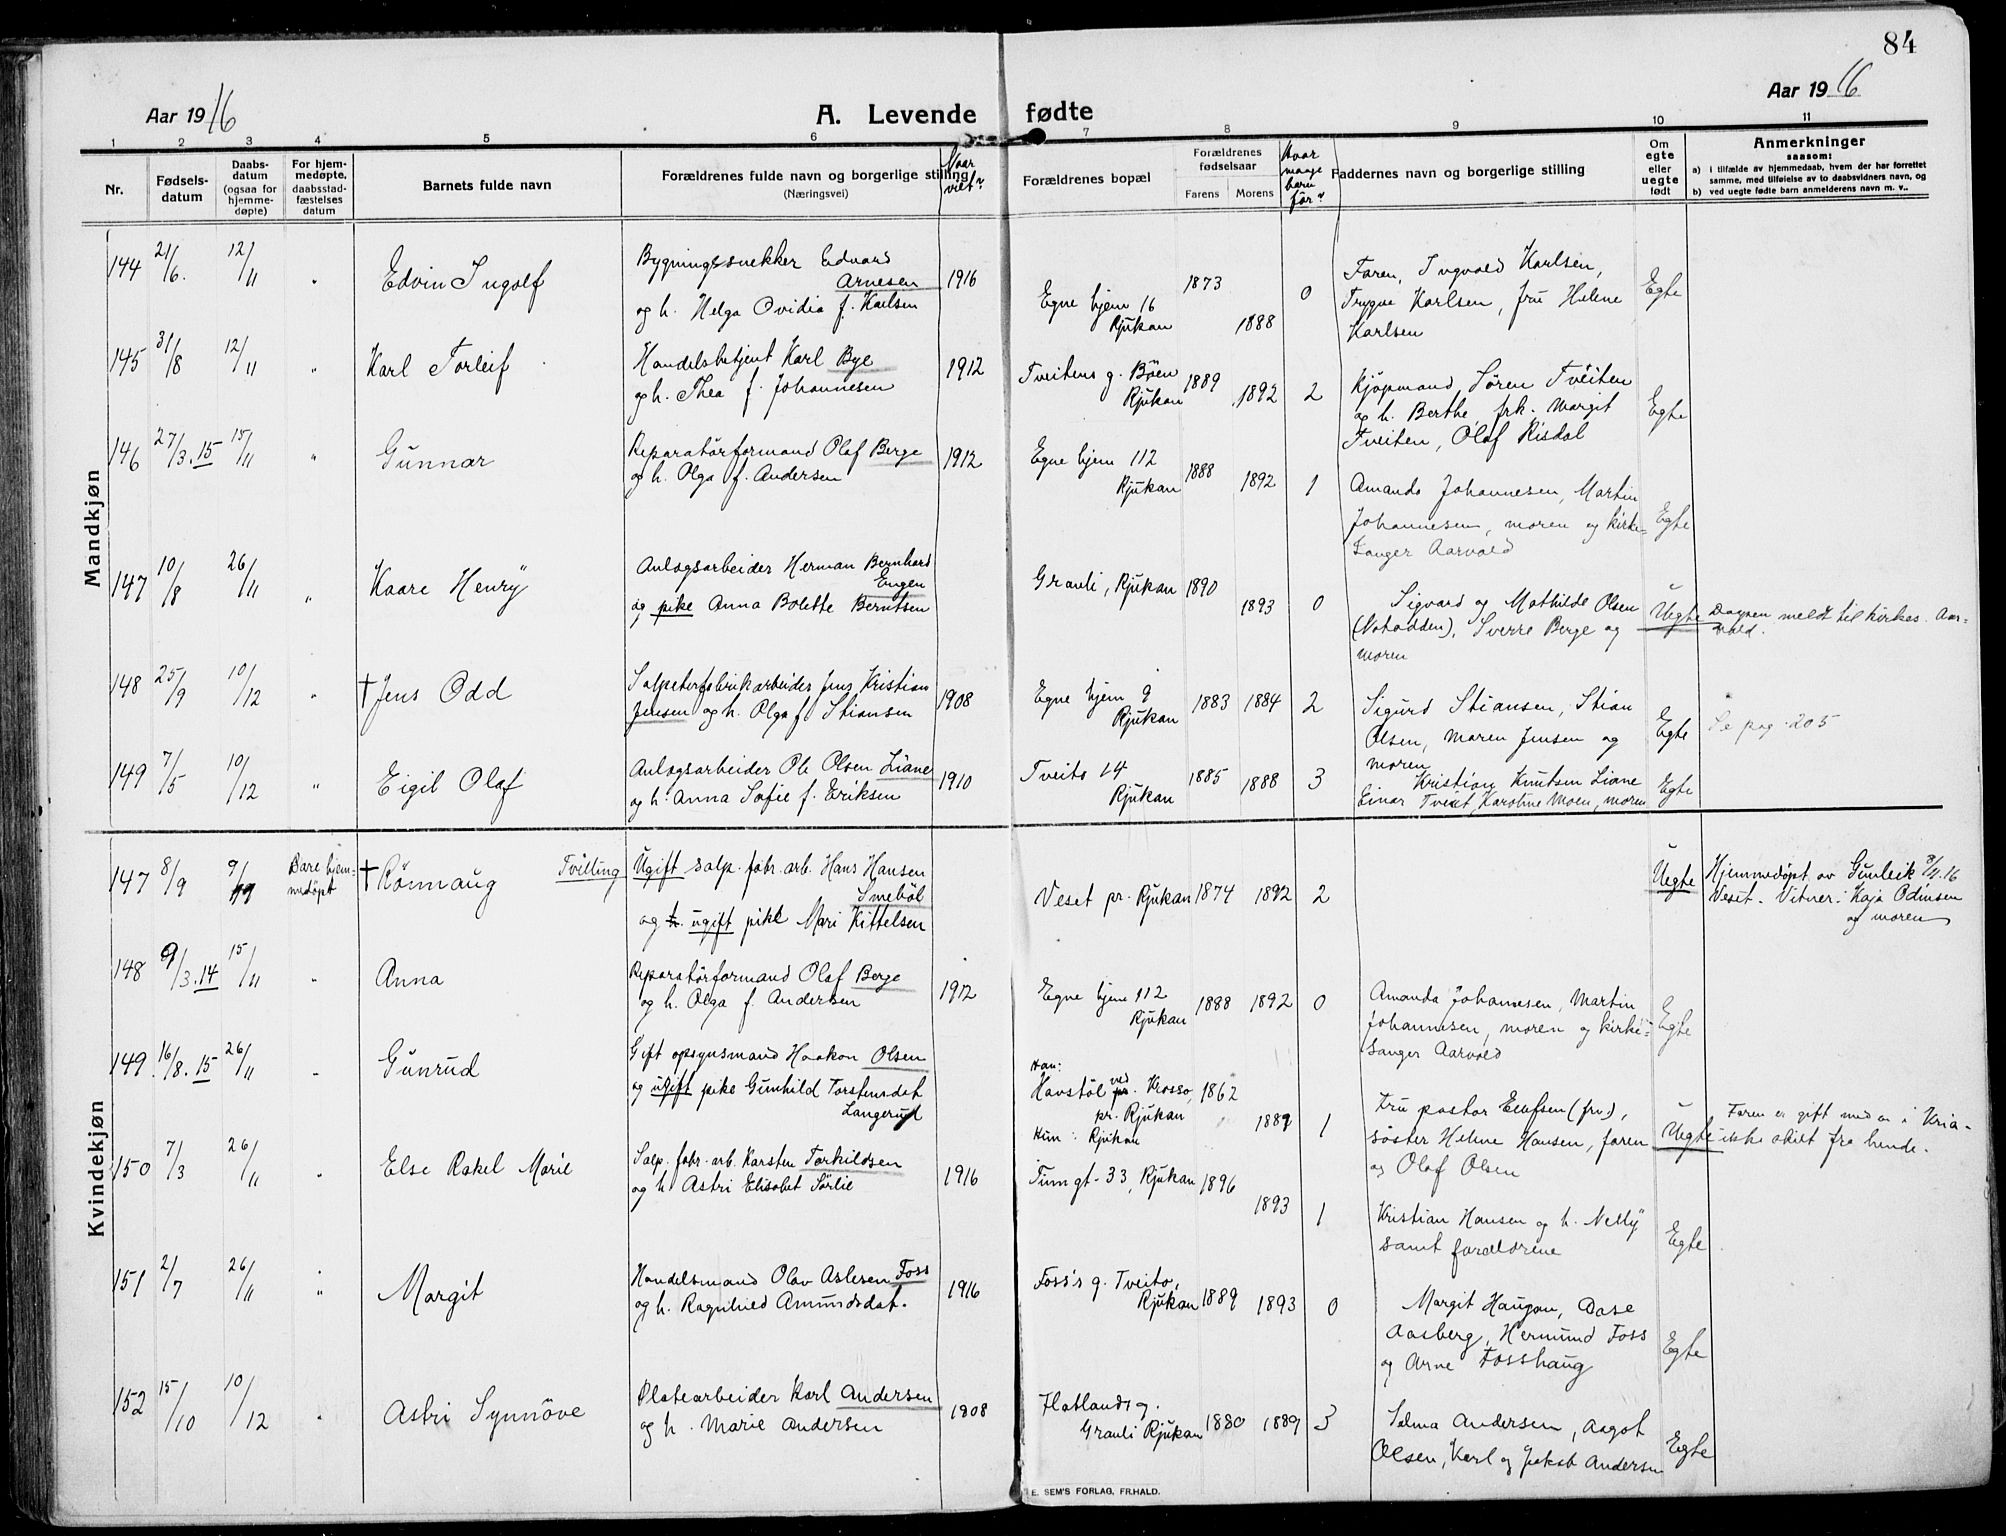 84
Aar 1916
A. Levende fødte
Aar 1916
1 2 3 4 5 6 7 8 9 10 11
Nr.
Fødsels-
datum
Daabs-
datum
(ogsaa for
hjemme-
døpte)
For hjem-
medøpte,
daabsstad-
fæstelses
datum
Barnets fulde navn
Forældrenes fulde navn og borgerlige stilling
(Næringsvei)
Naar
viet?
Forældrenes bopæl
Forældrenes
fødselsaar
Farens Morens
Hvor
mange
barn
før?
Faddernes navn og borgerlige stilling
Om
egte
eller
uegte
født
Anmerkninger
saasom:
a) i tilfælde av hjemmedaab, hvem der har forrettet
samme, med tilføielse av to daabsvidners navn, og
b) ved uegte fødte barn anmelderens navn m. v..
Mandkjøn
144 21/6. 12/11 " Edvin Ingolf
Bygningssnekker Edvard
Arnesen
og h. Helga Ovidia f. Karlsen
1916
Egne hjem 16
Rjukan
1873 1888 0
Faren, Ingvald Karlsen,
Trygve Karlsen, fru Helene
Karlsen
Egte
145 31/8 12/11 " Karl Torleif
Handelsbetjent Karl Bye
og h. Thea f. Johannesen
1912
Tveitens g. Böen
Rjukan
1889 1892 2
Kjöpmand Sören Tveiten
og h. Berthe, frk. Margit
Tveiten, Olaf Risdal
Egte
146 27/3.15 15/11 " Gunnar
Reparatörformand Olaf Berge
og h. Olga f. Andersen
1912
Egne hjem 112
Rjukan
1888 1892 1
Amanda Johannesen, Martin
Johannesen, moren og kirke-
sanger Aarvold
Egte
147 10/8 26/11 " Kaare Henry
Anlagsarbeider Herman Bernhard
Engen
og pike Anna Bolette Berntsen
Gravli, Rjukan
1890 1893 0
Sigvard og Mathilde Olsen
(Notodden), Sverre Berge og
moren
Uegte
Daapen meldt til kirkes. Aar-
vold.
148 25/9 10/12 " † Jens Odd
Salpeterfabrikarbeider Jens Kristian
Jensen og h. Olga f. Stiansen
1908
Egne hjem 9
Rjukan
1883 1884 2
Sigurd Stiansen, Stian
Olsen, Maren Jensen og
moren
Egte
Se pag. 205
149 7/5 10/12 " Eigil Olaf
Anlagsarbeider Ole Olsen Liane
og h. Anna Sofie f. Eriksen
1910
Tveito 14
Rjukan
1885 1888 3
Kristian Knutsen Liane
Einar Tveit, Karoline Moen, moren
Egte
Kvindekjøn
147 8/9 9/9 Bare hjem-
medöpt
† Rönnaug Tvilling
Ugift salp. fabr. arb. Hans Hansen
Smeböl
og h. ugift pike Mari Kittelsen
Veset pr. Rjukan
1874 1892 2
Uegte
Hjemmedöpt av Gunleik 9/9.16
Veset. Vitner: Kaja Odinsen
og moren
148 9/3.14 15/11 " Anna
Reparatörformand Olaf Berge
og h. Olga f. Andersen
1912
Egne hjem 112
Rjukan
1888 1892 0
Amanda Johannesen, Martin
Johannesen, moren og kirke-
sanger Aarvold
Egte
149 16/8.15 26/11 " Gunrud
Gift opsynsmand Haakon Olsen
og ugift pike Gunhild Torsteinsdat
Langerud
Han:
Havstöl ved Krosso,
pr. Rjukan
Hun: Rjukan
1862 1889 1
Fru pastor Ellefsen (fru),
söster Helene Hansen, faren
og Olaf Olsen
Uegte
Faren er gift med en i Kria-
ikke skilt fra hende.
150 7/3 26/11 " Else Rakel Marie
Salp. fabr. arb. Karsten Torkildsen
og h. Astri Elisabet Sörlie
1916
Tinngt. 33, Rjukan
1896 1893 1
Kristian Hansen og h. Nelly
samt forældrene
Egte
151 2/7 26/11 " Margit
Handelsmand Olav Aslesen Foss
og h. Ragnhild Amundsdat.
1916
Foss's g. Tveito,
Rjukan
1889 1893 0
Margit Haugan, Dose
Aasberg, Hermund Foss
og Arne Fosshaug
Egte
152 15/10 10/12 " Astri Synnöve
Platearbeider Karl Andersen
og h. Marie Andersen
1908
Flatlands g.
Gravli Rjukan
1880 1889 3
Selma Andersen, Aagot
Olsen, Karl og Jakob Andersen
Egte
E. SEM'S FORLAG, FR.HALD.